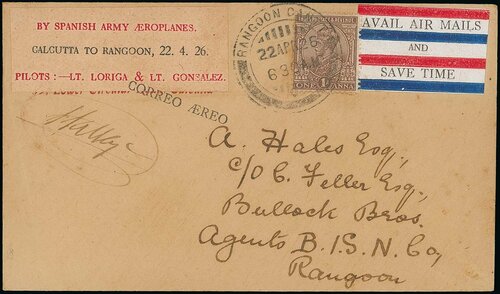 BY SPANISH ARMY ÆROPLANES.
CALCUTTA TO RANGOON, 22. 4. 26.
PILOTS :—LT. LORIGA & LT. GONSALEZ.
Lower
CORREO ÆREO
RANGOON
22 APR 26
ONE ANNA
AVAIL AIR MAILS
AND
SAVE TIME
A. Hales Esq.,
c/o C. Feller Esq.,
Bullock Bros.
Agents B.I.S.N. Co,
Rangoon